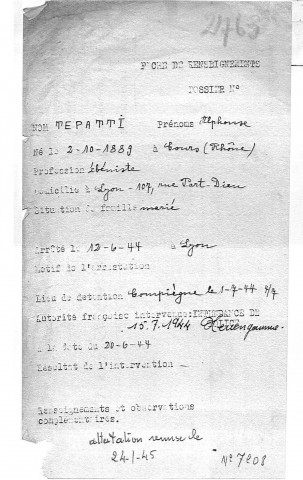 2463
FICHE DE RENSEIGNEMENTS
DOSSIER N°
NOM TEPATTI Prénoms Alphonse
Né le 2-10-1889 à Cours (Rhône)
Profession ébéniste
Domicile à Lyon - 107, rue Part-Dieu
Situation de famille marié
Arrêté le 12-6-44 à Lyon
Motif de l'arrestation
Lieu de détention Compiègne le 1-7-44
Autorité française intervenue: INTENDANCE DE
POLICE
15.7.1944
à la date du 20-6-44
Résultat de l'intervention
Renseignements et observations
complémentaires.
attestation remise le
24-1-45 N° 7208